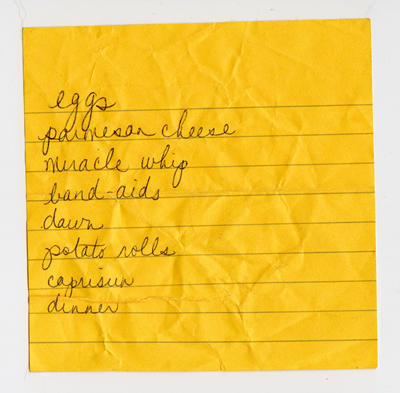 eggs
parmesan cheese
miracle whip
band-aids
dawn
potato rolls
caprisun
dinner